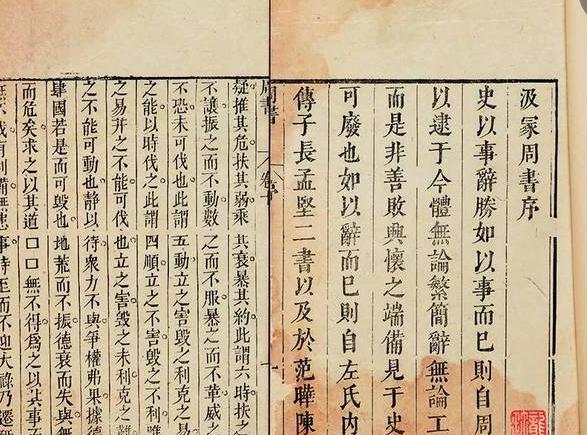 汲冢周書序
史以事辭勝如以事而已則自周
以逮于今體無論繁簡辭無論工
而是非善敗興懷之端備見于史
可廢也如以辭而已則自左氏內
傳子長孟堅二書以及於范曄陳
周書 卷 一
疑推其危扶其弱乘其衰暴其約此謂六時扶之
不讓振之而不動數之而不服暴之而不革威之
不恐未可伐也此謂五動立之害毀之利克之易
之能以時伐之此謂四順立之不害毀之不利唯
之易并之不能可伐也立之害毀之未利克之
之不能可動也靜以待衆力不與爭權弗果據德
肆國若是而可毀也地荒而不振德衰而失與無
而危矣求之以其道口口無不得爲之以其事而
不成有利備無患事時至而不迎大祿乃遷